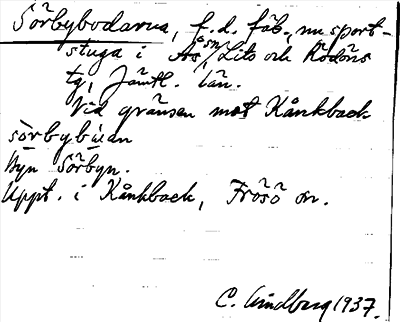 Sörbybodarna, f.d. fäb., nu sport-
stuga i Ås sn, Lits och Rödöns
tg, Jämtl. län.
Vid gränsen mot Kånkback
sörbybúan
Byn Sörbyn.
Uppt. i Kånkback, Frösö sn.
C. Lindberg 1937.